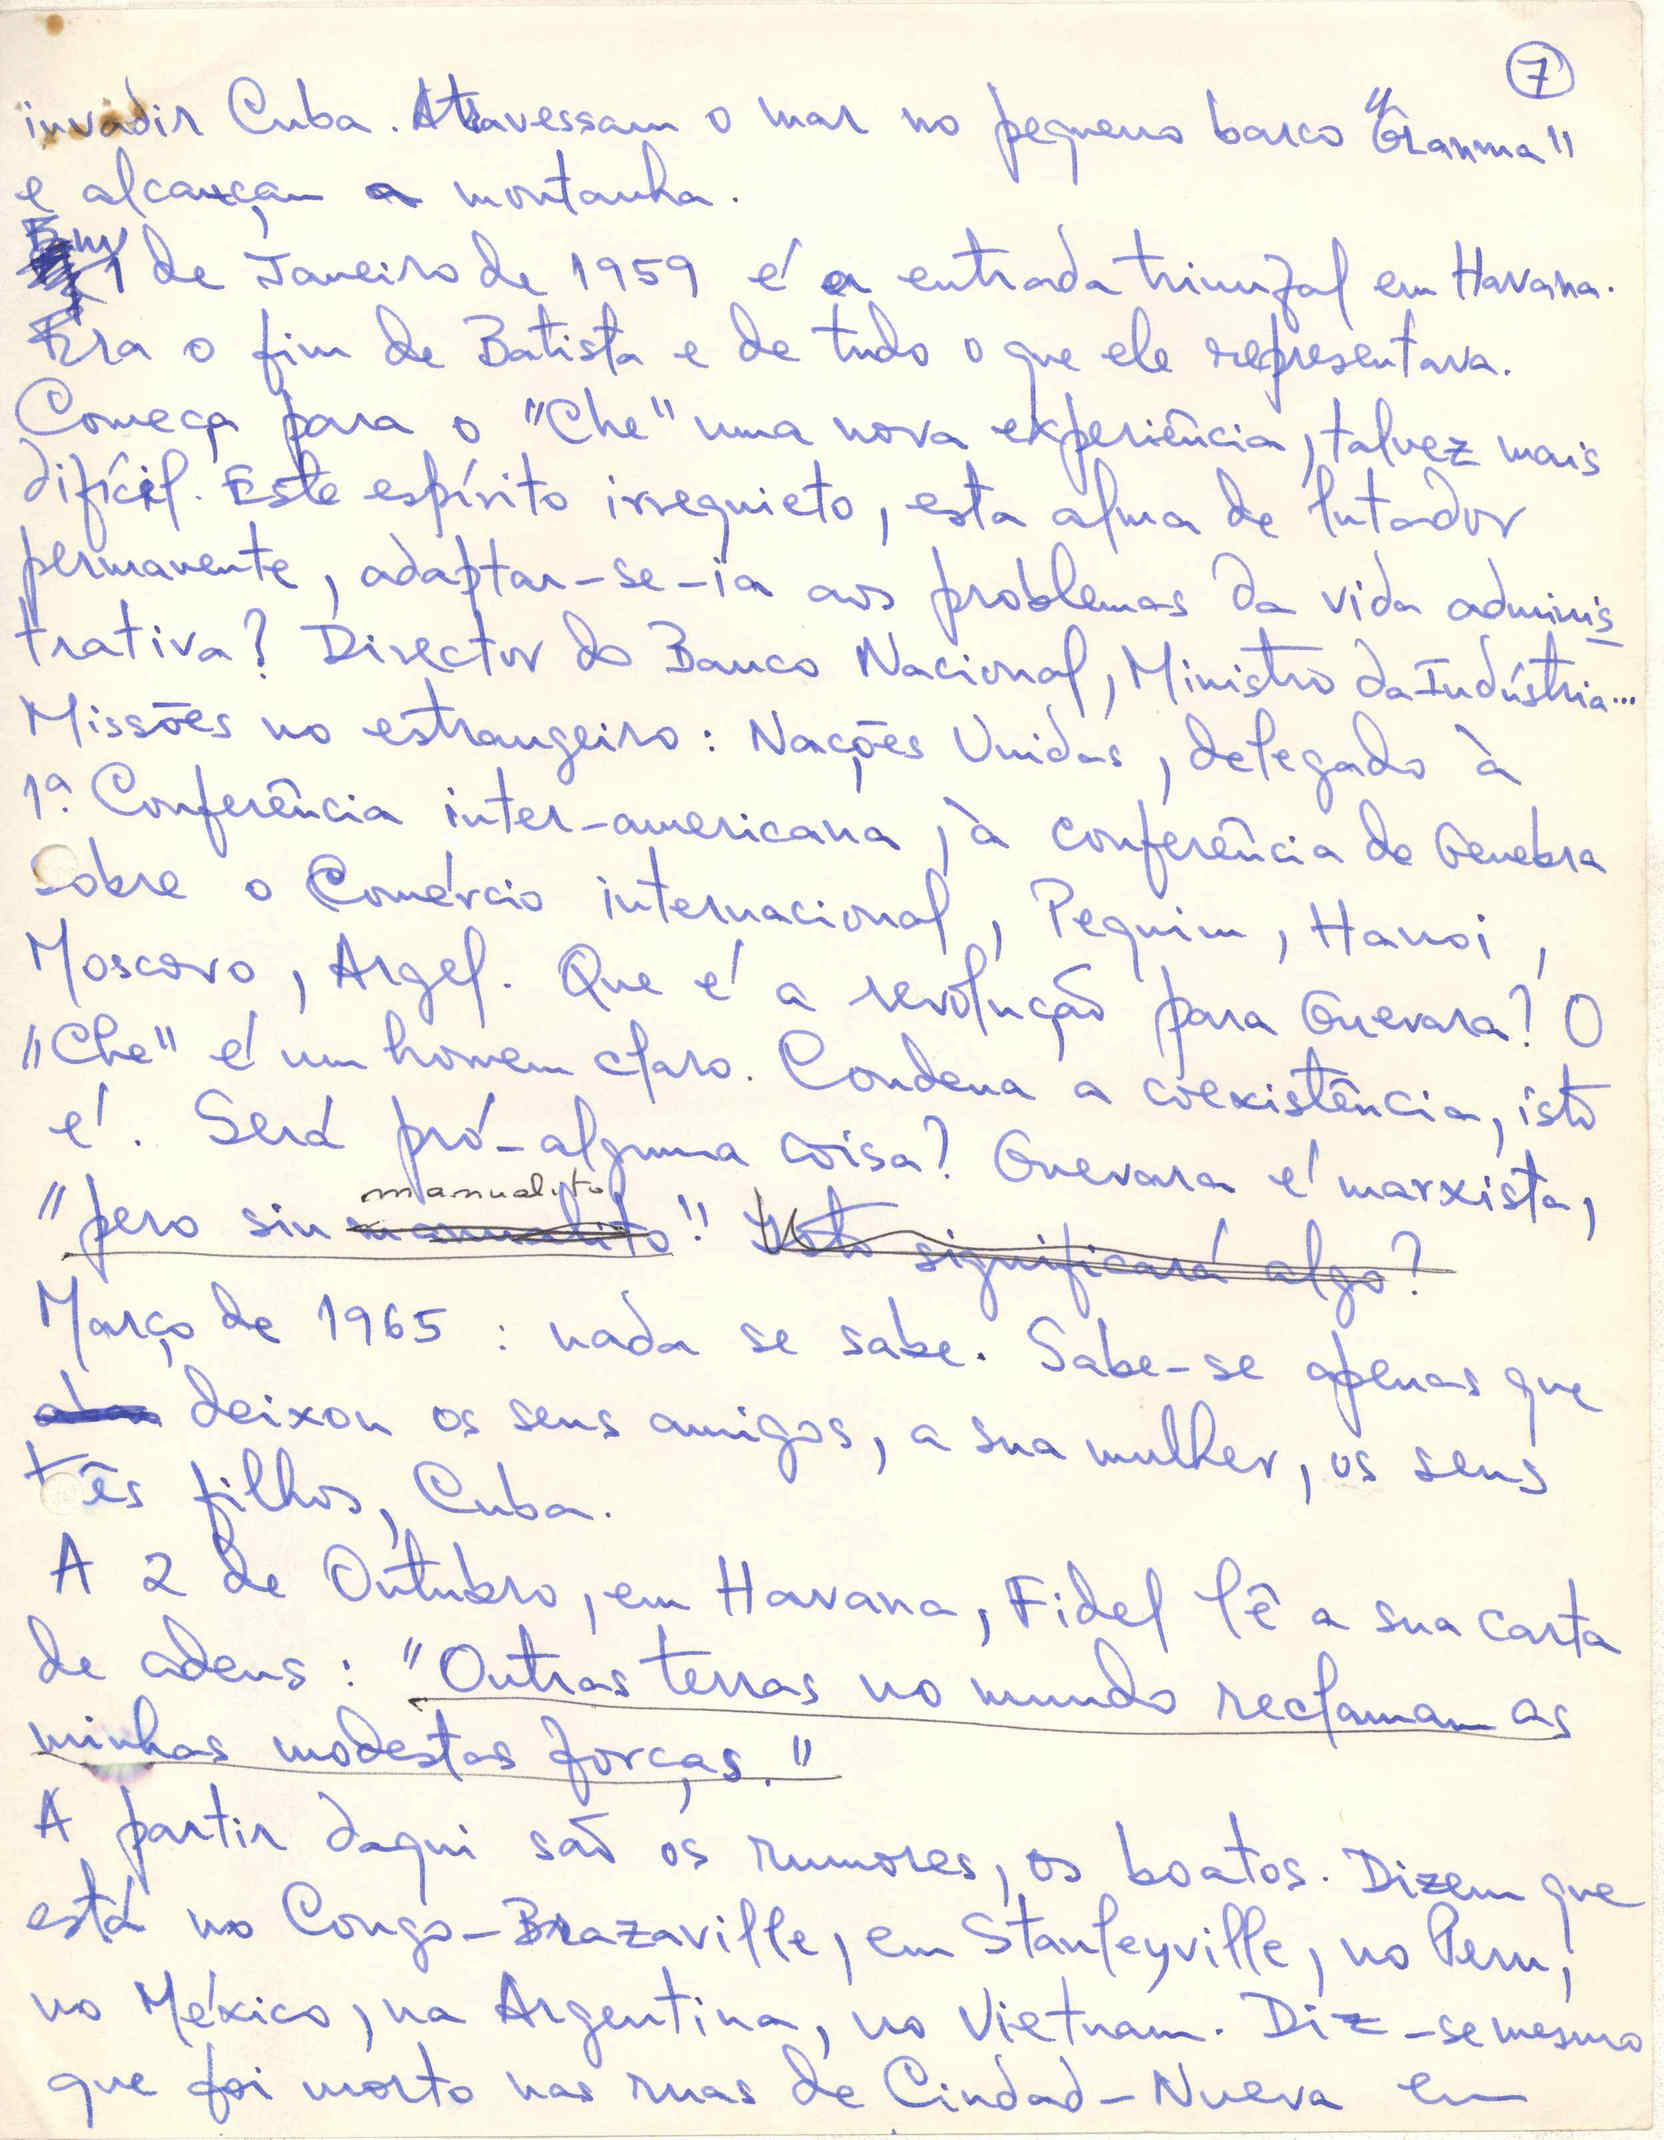 7
invadir Cuba. Atravessam o mar no pequeno barco "Granma"
e alcançam a montanha.
Em 1 de Janeiro de 1959 é a entrada triunfal em Havana.
Era o fim de Batista e de tudo o que ele representava.
Começa para o "Che" uma nova experiência, talvez mais
difícil. Este espírito irrequieto, esta alma de lutador
permanente, adaptar-se-ia aos problemas da vida adminis
trativa? Director do Banco Nacional, Ministro da Indústria...
Missões no estrangeiro: Nações Unidas, delegado à
1ª. Conferência inter-americana, à conferência de Genebra
sobre o Comércio internacional, Pequim, Hanoi,
Moscovo, Argel. Que é a revolução para Guevara? O
"Che" é um homem claro. Condena a coexistência, isto
é. Será pró-alguma coisa? Guevara é marxista,
manualito
"pero sin manualito"! Isto significará algo?
Março de 1965: nada se sabe. Sabe-se apenas que
deixou os seus amigos, a sua mulher, os seus
três filhos, Cuba.
A 2 de Outubro, em Havana, Fidel lê a sua carta
de adeus: "Outras terras no mundo reclamam as
minhas modestas forças."
A partir daqui são os rumores, os boatos. Dizem que
está no Congo-Brazaville, em Stanleyville, no Peru,
no México, na Argentina, no Vietnam. Diz-se mesmo
que foi morto nas ruas de Ciudad-Nueva em